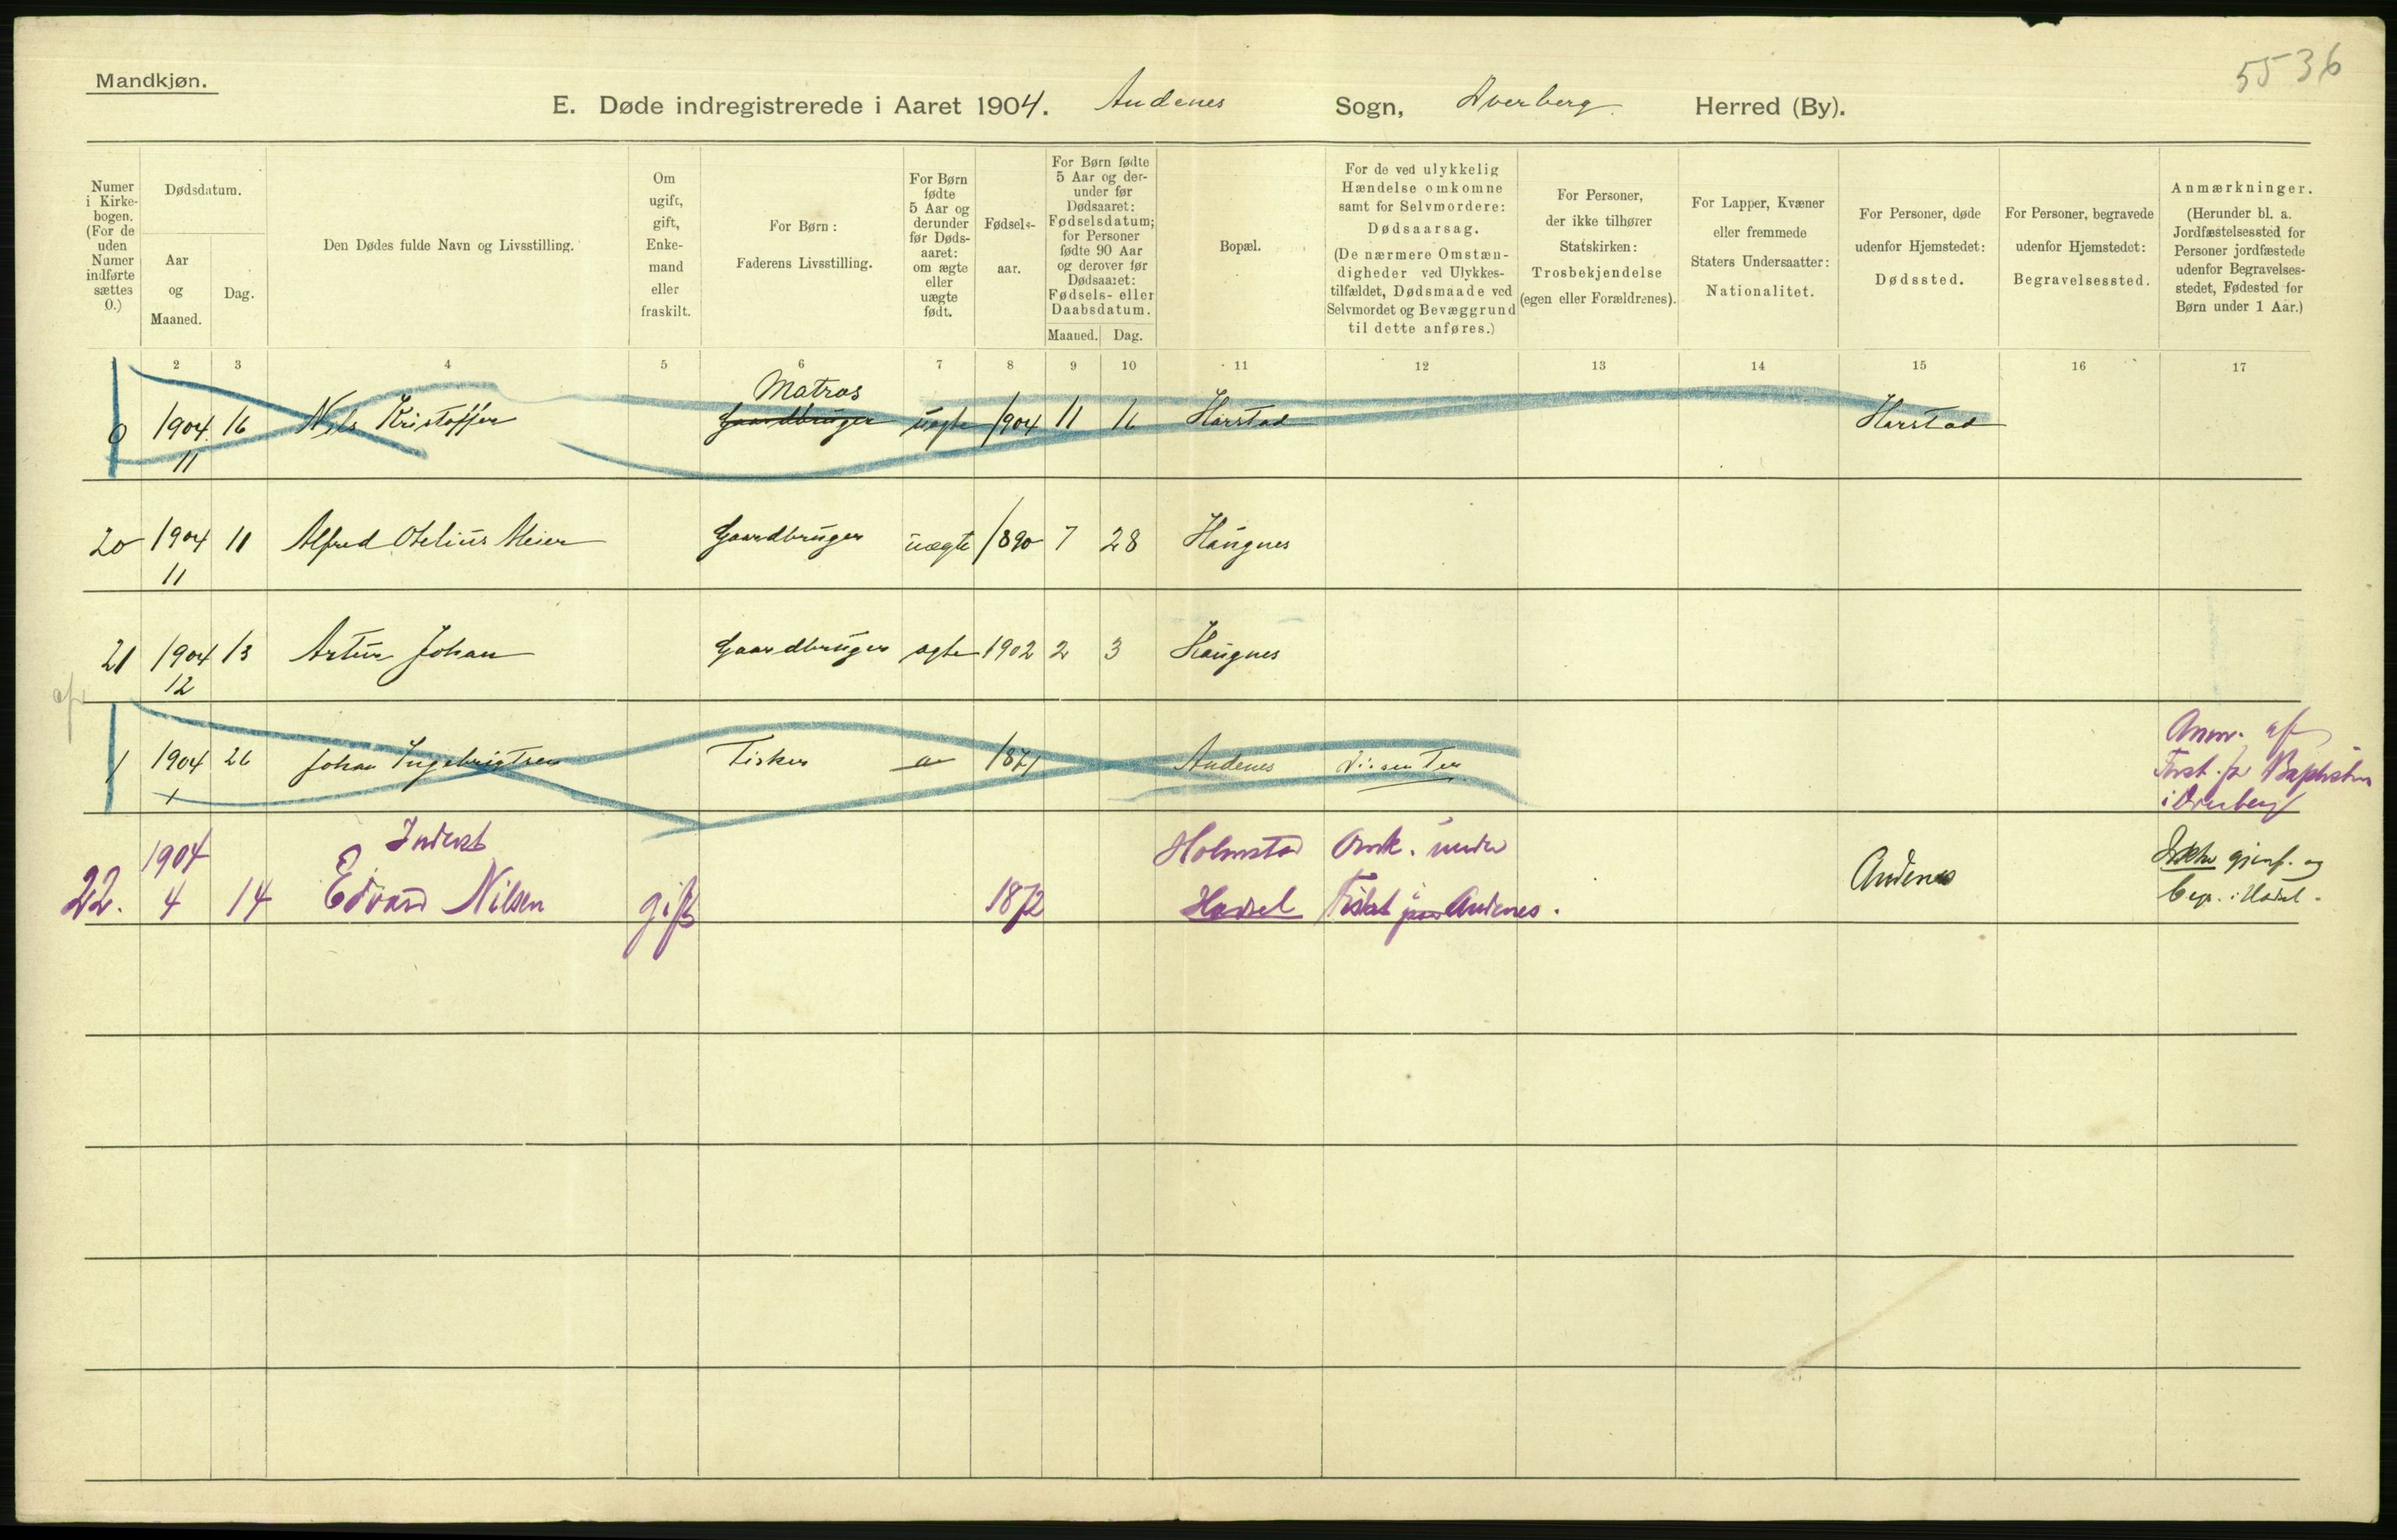 Mandkjøn.
5536
E. Døde indregistrerede i Aaret 1904. Andenes Sogn, Dverberg Herred (By).
Numer i Kirkebogen. (For de uden Numer indførte sættes 0.)
Dødsdatum.
Aar og Maaned.
Dag.
Den Dødes fulde Navn og Livsstilling.
Om ugift, gift, Enkemand eller fraskilt.
For Børn: Faderens Livsstilling.
For Børn fødte 5 Aar og derunder før Dødsaaret: om ægte eller uægte født.
Fødselsaar.
For Børn fødte 5 Aar og derunder før Dødsaaret: Fødselsdatum; for Personer fødte 90 Aar og derover før Dødsaaret: Fødsels- eller Daabsdatum.
Maaned. Dag.
Bopæl.
For de ved ulykkelig Hændelse omkomne samt for Selvmordere: Dødsaarsag. (De nærmere Omstændigheder ved Ulykkestilfældet, Dødsmaade ved Selvmordet og Bevæggrund til dette anføres.)
For Personer, der ikke tilhører Statskirken: Trosbekjendelse (egen eller Forældrenes).
For Lapper, Kvæner eller fremmede Staters Undersaatter: Nationalitet.
For Personer, døde udenfor Hjemstedet: Dødssted.
For Personer, begravede udenfor Hjemstedet: Begravelsessted.
Anmærkninger. (Herunder bl. a. Jordfæstelsessted for Personer jordfæstede udenfor Begravelsesstedet, Fødested for Børn under 1 Aar.)
2 3 4 5 6 7 8 9 10 11 12 13 14 15 16 17
Matros
0 1904 16 Nils Kristoffer Gaardbruger uægte 1904 11 16 Harstad Harstad
11
20 1904 11 Alfred Otelius Meier Gaardbruger uægte 1890 7 28 Haugnes
11
21 1904 13 Artur Johan Gaardbruger ægte 1902 2 3 Haugnes
12
1 1904 26 Johan Ingebrigtsen Fisker 1871 Andenes Dissenter
Anm. af
Forst. for Baptister
i Dverberg
1904 Inderst Holmstad Omk. under
22. 4 14 Edvard Nilsen gift 1872 Hadsel Fiskeri Andenes. Andenes
Ikke gjenf. og
begr. i Hadsel.